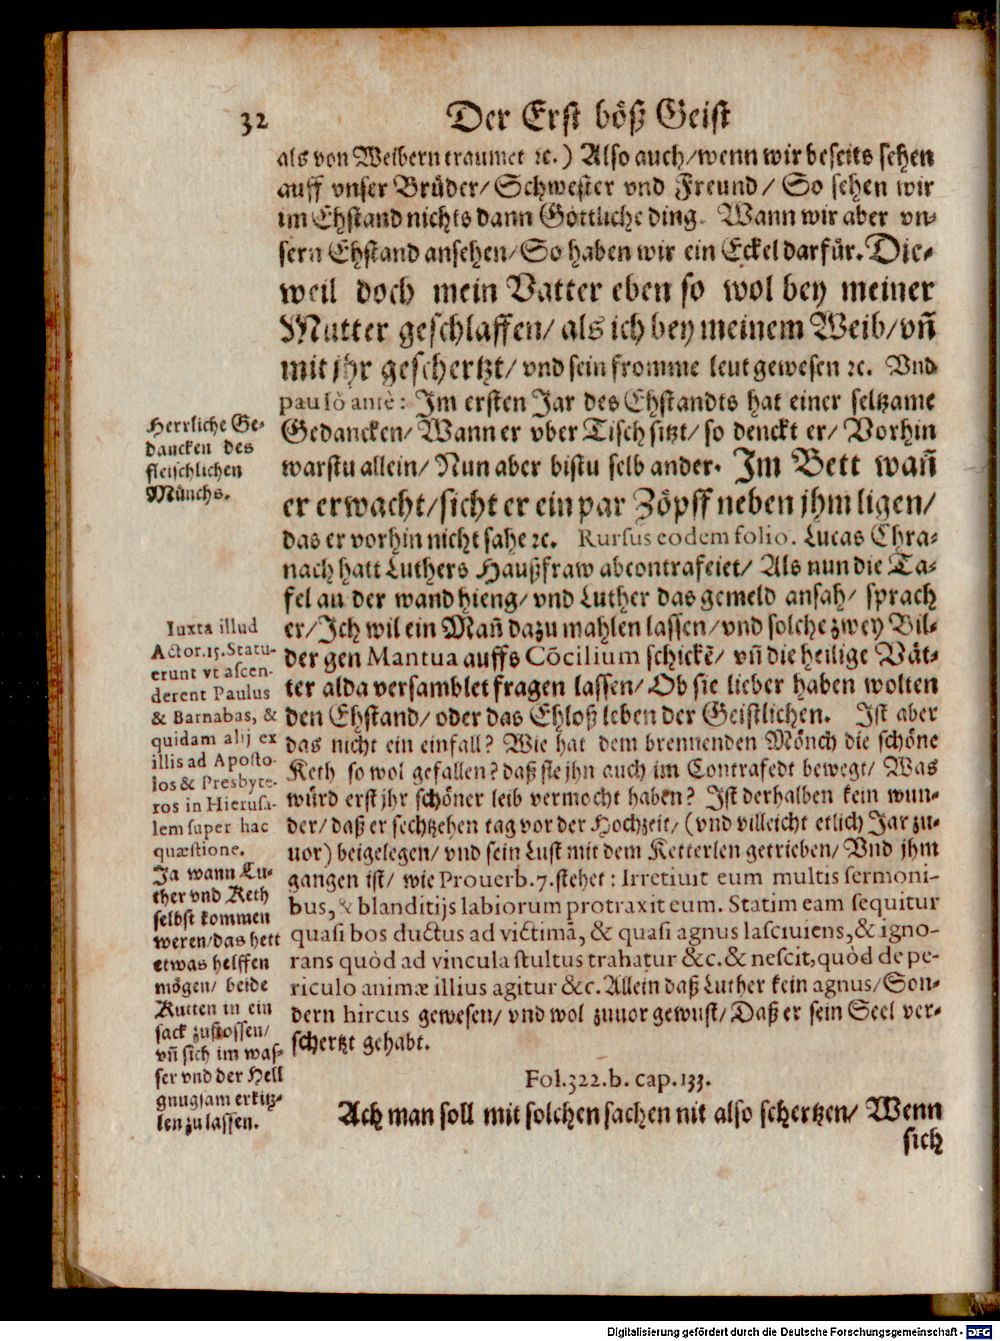 32
Der Erst böß Geist
als von Weibern traumet ꝛc.) Also auch/wenn wir beseits sehen
auff vnser Brüder/ Schwester vnd Freund/ So sehen wir
im Ehstand nichts dann Göttliche ding. Wann wir aber vn-
sern Ehstand ansehen/ So haben wir ein Eckel darfür. Die-
weil doch mein Vatter eben so wol bey meiner
Mutter geschlaffen/ als ich bey meinem Weib/ vñ
mit jhr geschertzt/ vnd sein fromme leut gewesen ꝛc. Vnd
paulò antè: Im ersten Jar des Ehstandts hat einer seltzame
Gedancken/ Wann er vber Tisch sitzt/ so denckt er/ Vorhin
warstu allein/ Nun aber bistu selb ander. Im Bett wañ
er erwacht/sicht er ein par Zöpff neben jhm ligen/
das er vorhin nicht sahe ꝛc. Rursus eodem folio. Lucas Chra-
nach hatt Luthers Haußfraw abcontrafeiet/ Als nun die Ta-
fel an der wand hieng/ vnd Luther das gemeld ansah/ sprach
er/ Ich wil ein Mañ dazu mahlen lassen/ vnd solche zwey Bil-
der gen Mantua auffs Cõcilium schickẽ/ vñ die heilige Vät-
ter alda versamblet fragen lassen/ Ob sie lieber haben wolten
den Ehstand/ oder das Ehloß leben der Geistlichen. Ist aber
das nicht ein einfall? Wie hat dem brennenden Mönch die schöne
Keth so wol gefallen? daß sie jhn auch im Contrafedt bewegt/ Was
würd erst jhr schöner leib vermocht haben? Ist derhalben kein wun-
der/ daß er sechtzehen tag vor der Hochzeit/ (vnd villeicht etlich Jar zu-
uor) beigelegen/ vnd sein Lust mit dem Ketterlen getrieben/ Vnd jhm
gangen ist/ wie Prouerb.7. stehet: Irretiuit eum multis sermoni-
bus, & blanditijs labiorum protraxit eum. Statim eam sequitur
quasi bos ductus ad victimã, & quasi agnus lasciuiens, & igno-
rans quòd ad vincula stultus trahatur &c. & nescit, quòd de pe-
riculo animæ illius agitur &c. Allein daß Luther kein agnus/ Son-
dern hircus gewesen/ vnd wol zuuor gewust/ Daß er sein Seel ver-
schertzt gehabt.
Fol.322.b. cap.133.
Ach man soll mit solchen sachen nit also schertzen/ Wenn
sich
Herrliche Ge-
dancken des
fleischlichen
Münchs.
Iuxta illud
Actor.15. Statu-
erunt vt ascen-
derent Paulus
& Barnabas, &
quidam alij ex
illis ad Aposto-
los & Presbyte-
ros in Hierusa-
lem super hac
quæstione.
Ja wann Lu-
ther vnd Keth
selbst kommen
weren/ das hett
etwas helffen
mögen/ beide
Kutten in ein
sack zustossen/
vñ sich im was-
ser vnd der Hell
gnugsam erkitz-
len zu lassen.
Digitalisierung gefördert durch die Deutsche Forschungsgemeinschaft - DFG